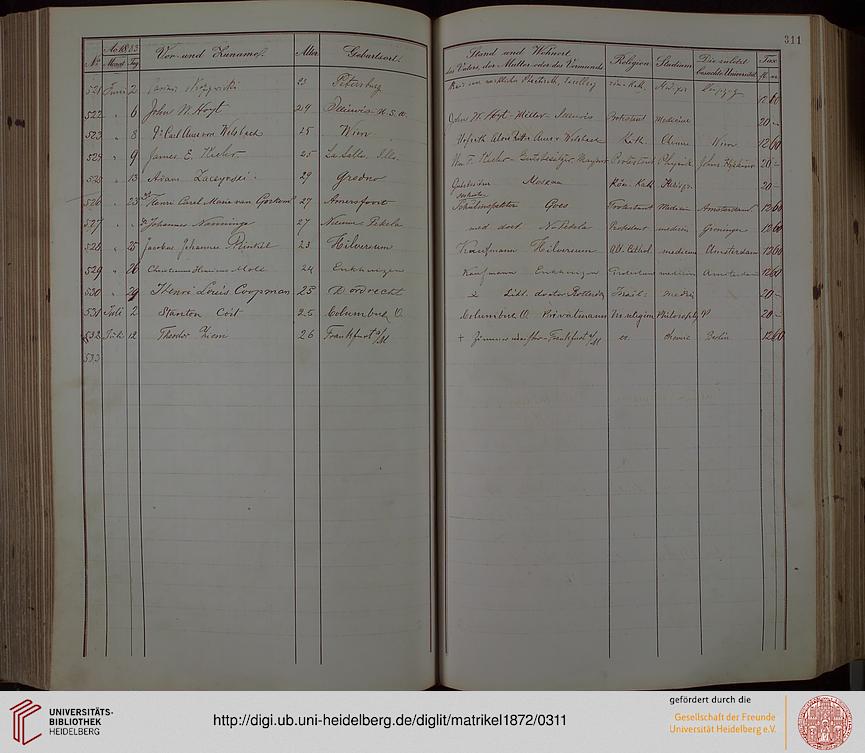 311
Ao 1883
No. Monat Tag Vor- und Zuname. Alter Geburtsort.
Stand und Wohnort des Vaters, der Mutter oder des Vormunds Religion Studium Die zuletzt besuchte Universität Tax fl. kr.
521 Juni 2 23 Petersburg
522 " 6 John W. Hoyt 29 Illinois U.S.A. John W. Hoyt Miller Illinois Protestant Medicine 20 -
523 " 8 Dr Carl Auer von Welsbach 25 Wien Hofrath Alois Ritter Auer v. Welsbach Kath. Chemie Wien 12 60
524 " 9 James E. 25 La Salle, Ills. Gutsbesitzer, Protestant Physik Johns Hopkins 20 -
525 " 13 Adam 29 Grodno Gutsbesitzer Moskau Röm. Kath. 20 -
526 " 23 Henri Carel Marie van Gorkom 27 Amersfoort Schulinspektor Goes Protestant Medicin Amsterdam 12 60
527 " " Johannes Nanninga 27 Nieuwe Pekela med. doct N. Pekela Protestant medicin Groningen 12 60
528 " 25 Jacobus Johannes 23 Hilversum Kaufmann Hilversum Alt. Cathol. medicin Amsterdam 12 60
529 " 26 24 Enkhuizen Kaufmann Enkhuizen Protestant medicin Amsterdam 12 60
530 " 29 Henri Louis Coopman 25 Dordrecht 20 -
531 Juli 2 Stanton Coit 25 Columbus O. Columbus O. Privatmann No religion Philosophy 20 -
532 Juli 12 Theodor 26 Frankfurt a/M + Zimmermeister - Frankfurt a/M ev. Chemie Berlin 12 60
533
UNIVERSITÄTS-
BIBLIOTHEK
HEIDELBERG
http://digi.ub.uni-heidelberg.de/diglit/matrikel1872/0311
gefördert durch die
Gesellschaft der Freunde
Universität Heidelberg e.V.